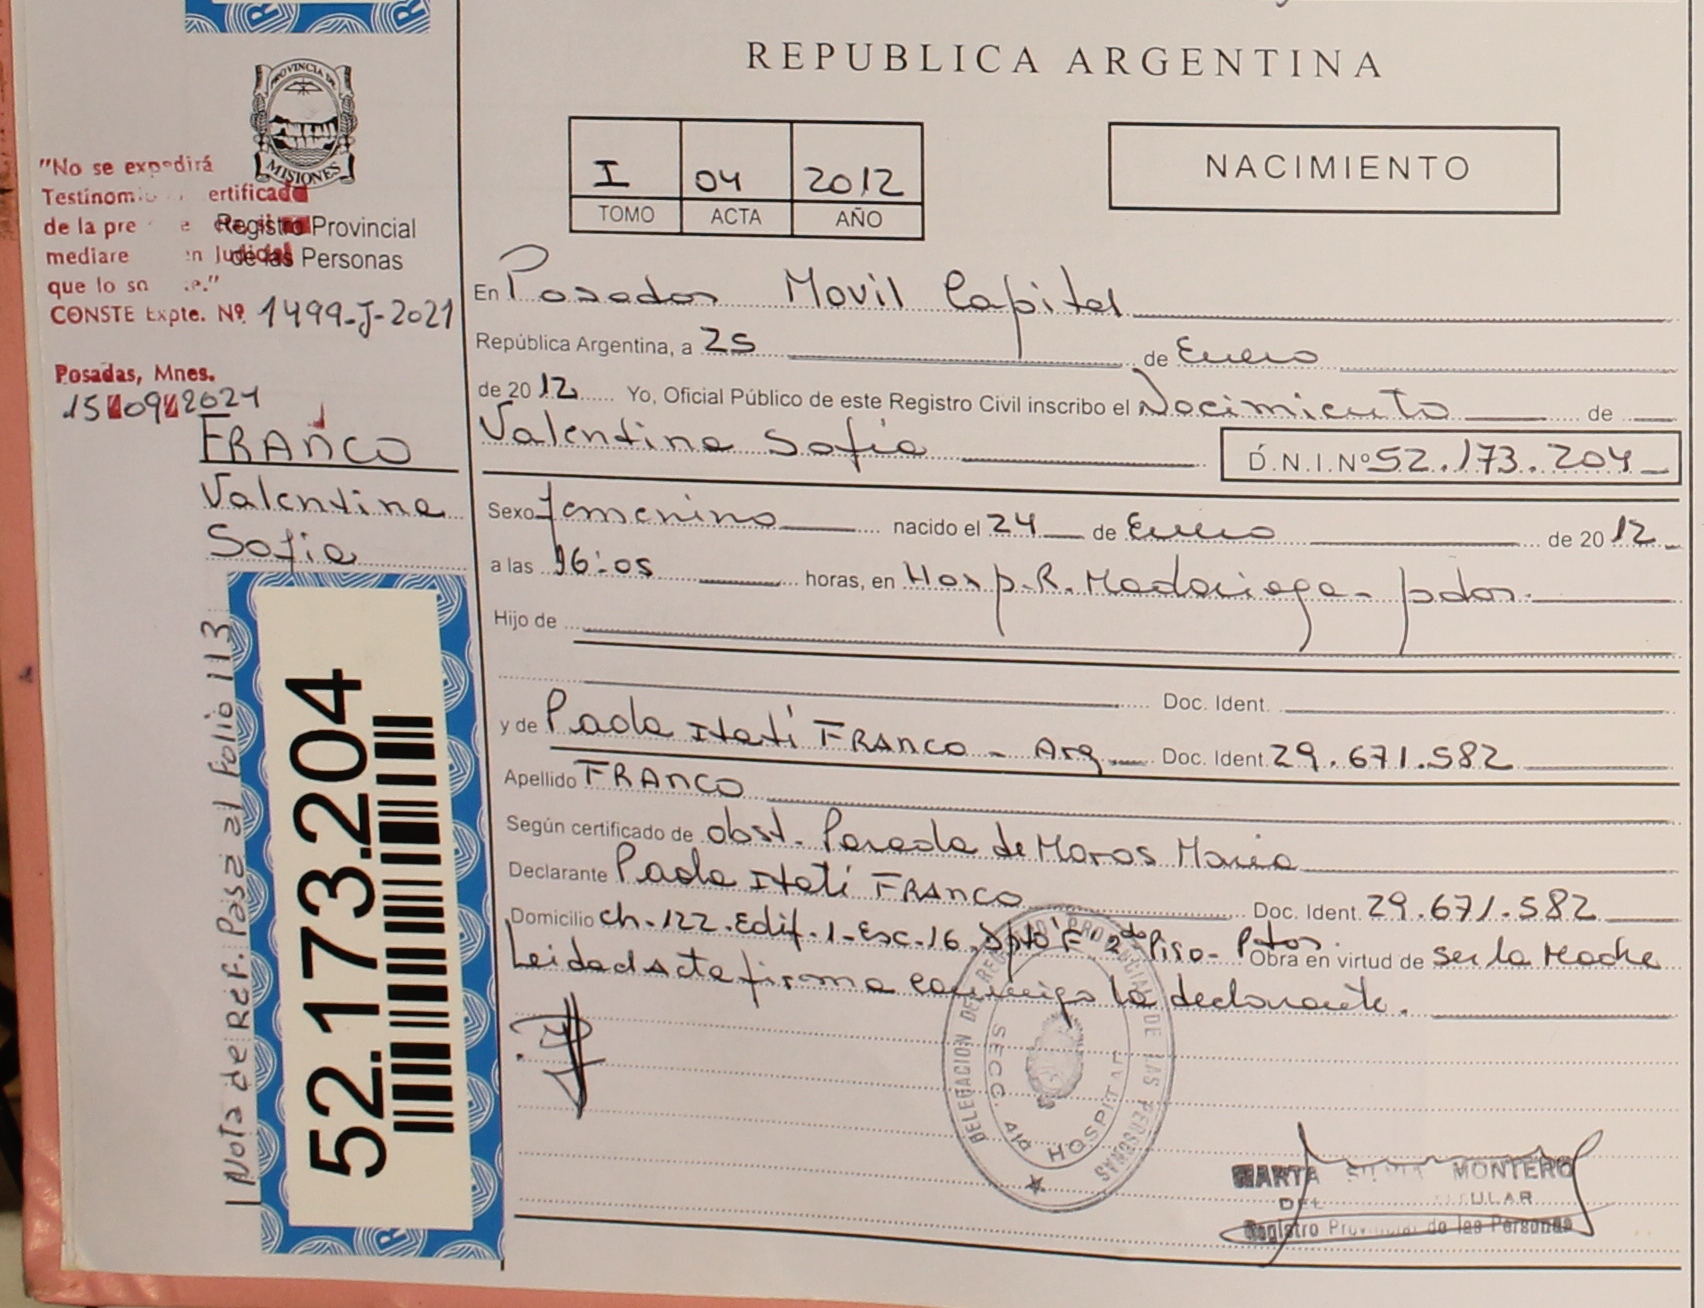 REPUBLICA ARGENTINA
PROVINCIA DE
MISIONES
Registro Provincial
de las Personas
"No se expedirá
Testinom ertificado
de la pre e
mediare en Judicial
que lo so .e."
CONSTE Expte. Nº 1499-J-2021
Posadas, Mnes.
15 09 2021
FRANCO
Valentina
Sofia
Nota de Ref. Pasa al Folio 113
52.173.204
I 04 2012
TOMO ACTA AÑO
NACIMIENTO
En Posadas Movil Capital
República Argentina, a 25 de Enero
de 2012 Yo, Oficial Público de este Registro Civil inscribo el Nacimiento de
Valentina Sofia D.N.I.Nº 52.173.204
Sexo femenino nacido el 24 de Enero de 2012
a las 06:05 horas, en Hosp. R. Madariaga - pdas.
Hijo de
Doc. Ident.
y de Paola Itatí FRANCO - Arg. Doc. Ident. 29.671.582
Apellido FRANCO
Según certificado de obst. Pereda de Moros Maria
Declarante Paola Itatí FRANCO Doc. Ident. 29.671.582
Domicilio ch-122-Edif-1-Esc-16 Dpto "F" 2do Piso- Pdas. Obra en virtud de ser la Madre
Leida el Acta firma conmigo la declarante.
DELEGACION DEL REGISTRO PROVINCIAL DE LAS PERSONAS
SECC. 4ta HOSPITAL
MARTA SILVIA MONTERO
DEL ULAR
Registro Provincial de las Personas